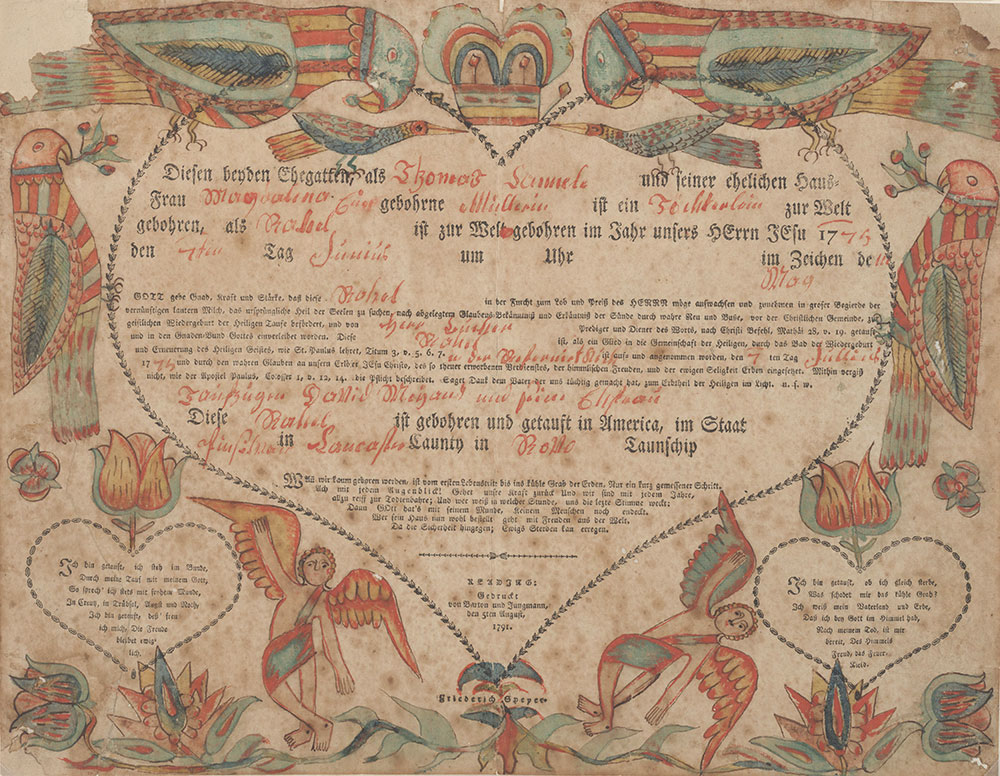 Diesen beyden Ehegatten, als Thomas Samuel und seiner ehelichen Haus-
Frau Magdalina gebohrne Müllerin ist ein Töchterlein zur Welt
gebohren, als Rahel ist zur Welt gebohren im Jahr unsers HErrn JEsu 1775
den 7ten Tag Junius um Uhr im Zeichen der
GOTT gebe Gnad, Kraft und Stärke, daß diese Rahel in der Furcht zum Lob und Preiß des HERRN möge aufwachsen und zunehmen in groser Begierde der
vernünftigen lautern Milch, das ursprüngliche Heil der Seelen zu suchen, nach abgelegtem Glaubens-Bekäntnuß und Erkäntnuß der Sünde durch wahre Reu und Buse, vor der Christlichen Gemeinde, zur
geistlichen Wiedergeburt der Heiligen Taufe befördert, und von Herr Prediger und Diener des Worts, nach Christi Befehl, Mathäi 28, v. 19. getauft
und in den Gnaden-Bund Gottes einverleibet worden. Diese Rahel ist, als ein Glied in die Gemeinschaft der Heiligen, durch das Bad der Wiedergeburt
und Erneuerung des Heiligen Geistes, wie St. Paulus lehret, Titum 3, v. 5. 6. 7. in der ist auf- und angenommen worden, den 7 ten Tag
1775 und durch den wahren Glauben an unsern Erlöser JEsu Christo, des so theuer erworbenen Verdienstes, der himmlischen Freuden, und der ewigen Seligkeit Erben eingesetzet. Mithin vergiß
nicht, wie der Apostel Paulus, Colosser 1, v. 12. 14. die Pflicht beschreibet. Saget Dank dem Vater der uns tüchtig gemacht hat, zum Erbtheil der Heiligen im Licht. u. s. w.
Taufzeugen David und seine Ehfrau
Diese Rahel ist gebohren und getauft in America, im Staat
in Lancaster Caunty in Taunschip
WAñ wir kaum geboren werden, ist vom ersten Lebenstritt bis ins kühle Grab der Erden. Nur ein kurz gemessner Schritt.
Ach mit jedem Augenblick! Gehet unsre Kraft zurück Und wir sind mit jedem Jahre,
allzu reiff zur Todtenbahre; Und wer weiß in welcher Stunde, uns die letzte Stimme weckt:
Dann GOtt hat's mit seinem Munde. Keinem Menschen noch endeckt.
Wer sein Haus nun wohl bestellt geht mit Freuden aus der Welt.
Da die Sicherheit hingegen; Ewigs Sterben kan erregen.
READING:
Gedruckt
von Barton und Jungmann,
den 5ten August,
1791.
Ich bin getauft, ich steh im Bunde,
Durch meine Tauf mit meinem Gott,
So sprech' ich stets mit frohem Munde,
In Creutz, in Trübsal, Angst und Noth,
Ich bin getauft, deß freu
ich mich, Die Freude
bleibet ewig-
lich.
Ich bin getauft, ob ich gleich sterbe,
Was schadet mir das kühle Grab?
Ich weiß mein Vaterland und Erbe,
Das ich bey Gott im Himmel hab,
Nach meinem Tod, ist mir
bereit, Des Himmels
Freud, das Feyer-
Kleid.
Friederich Speyer